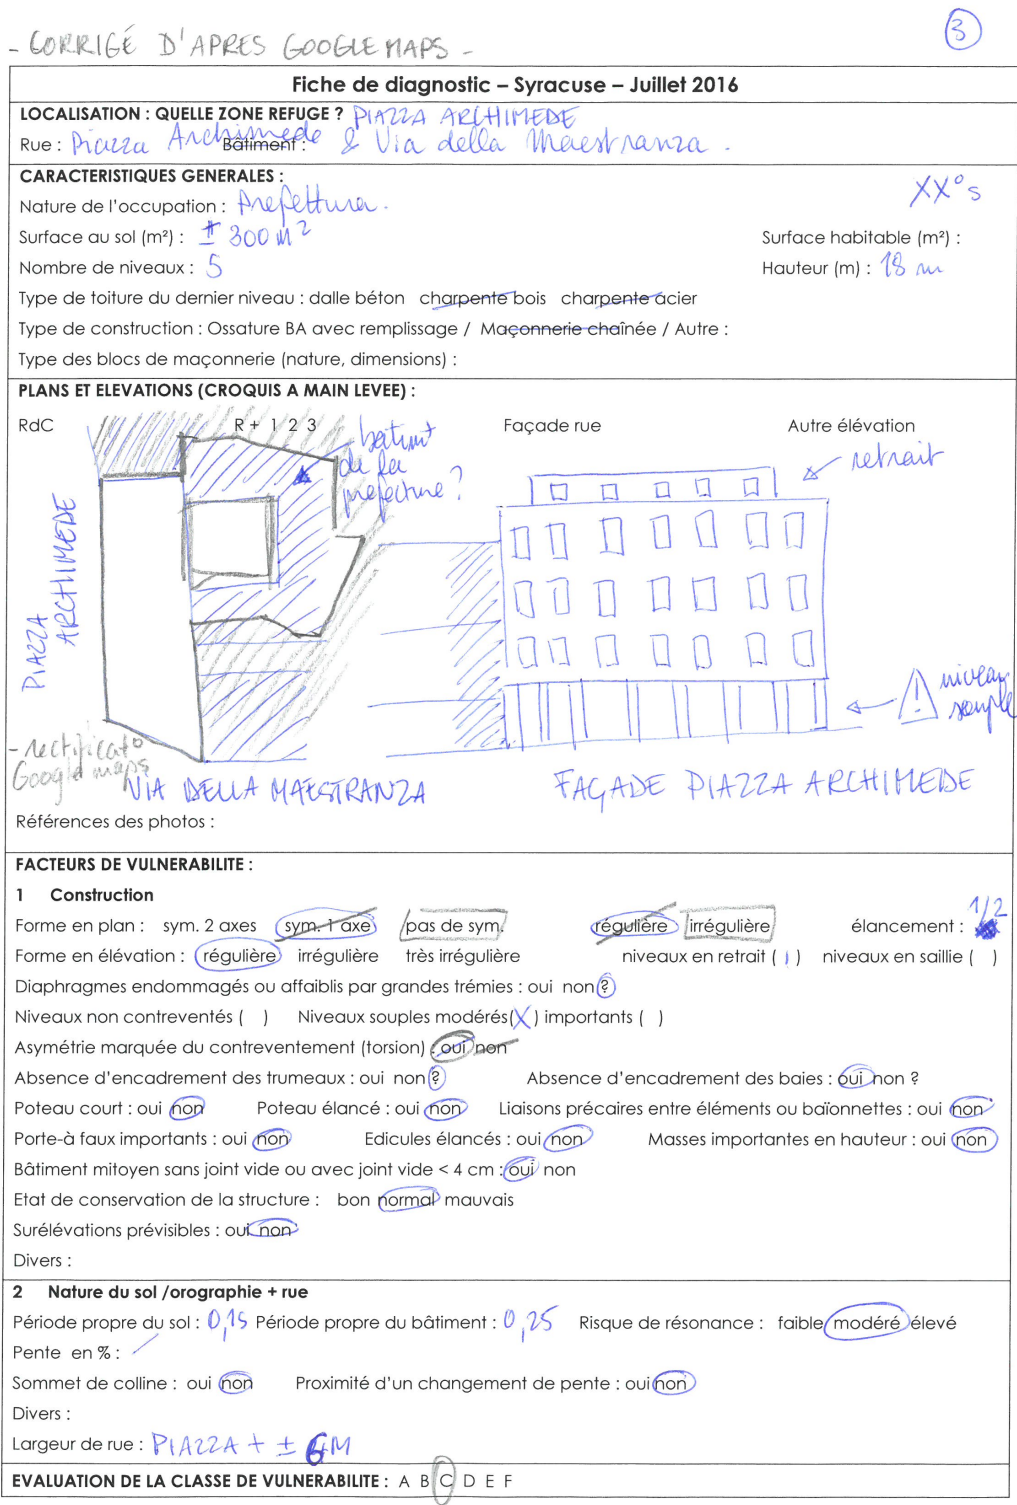 - CORRIGÉ D'APRES GOOGLE MAPS -
3
Fiche de diagnostic – Syracuse – Juillet 2016
LOCALISATION : QUELLE ZONE REFUGE ? PIAZZA ARCHIMEDE
Rue : Piazza Archimede Bâtiment : & Via della Maestranza .
CARACTERISTIQUES GENERALES :
XX° s
Nature de l'occupation : Prefettura .
Surface au sol (m²) : ± 300 m² Surface habitable (m²) :
Nombre de niveaux : 5 Hauteur (m) : 18 m
Type de toiture du dernier niveau : dalle béton charpente bois charpente acier
Type de construction : Ossature BA avec remplissage / Maçonnerie chaînée / Autre :
Type des blocs de maçonnerie (nature, dimensions) :
PLANS ET ELEVATIONS (CROQUIS A MAIN LEVEE) :
RdC R+ 1 2 3 Façade rue Autre élévation
batiment
de la
prefecture ?
retrait
PIAZZA
ARCHIMEDE
niveau
souple
- rectificato
Google maps
VIA DELLA MAESTRANZA FAÇADE PIAZZA ARCHIMEDE
Références des photos :
FACTEURS DE VULNERABILITE :
1 Construction
Forme en plan : sym. 2 axes sym. 1 axe pas de sym. régulière irrégulière élancement : 1/2
Forme en élévation : régulière irrégulière très irrégulière niveaux en retrait ( 1 ) niveaux en saillie ( )
Diaphragmes endommagés ou affaiblis par grandes trémies : oui non ?
Niveaux non contreventés ( ) Niveaux souples modérés (X) importants ( )
Asymétrie marquée du contreventement (torsion) : oui non
Absence d'encadrement des trumeaux : oui non ? Absence d'encadrement des baies : oui non ?
Poteau court : oui non Poteau élancé : oui non Liaisons précaires entre éléments ou baïonnettes : oui non
Porte-à faux importants : oui non Edicules élancés : oui non Masses importantes en hauteur : oui non
Bâtiment mitoyen sans joint vide ou avec joint vide < 4 cm : oui non
Etat de conservation de la structure : bon normal mauvais
Surélévations prévisibles : oui non
Divers :
2 Nature du sol /orographie + rue
Période propre du sol : 0,15 Période propre du bâtiment : 0,25 Risque de résonance : faible modéré élevé
Pente en % :
Sommet de colline : oui non Proximité d'un changement de pente : oui non
Divers :
Largeur de rue : PIAZZA + ± 6M
EVALUATION DE LA CLASSE DE VULNERABILITE : A B C D E F